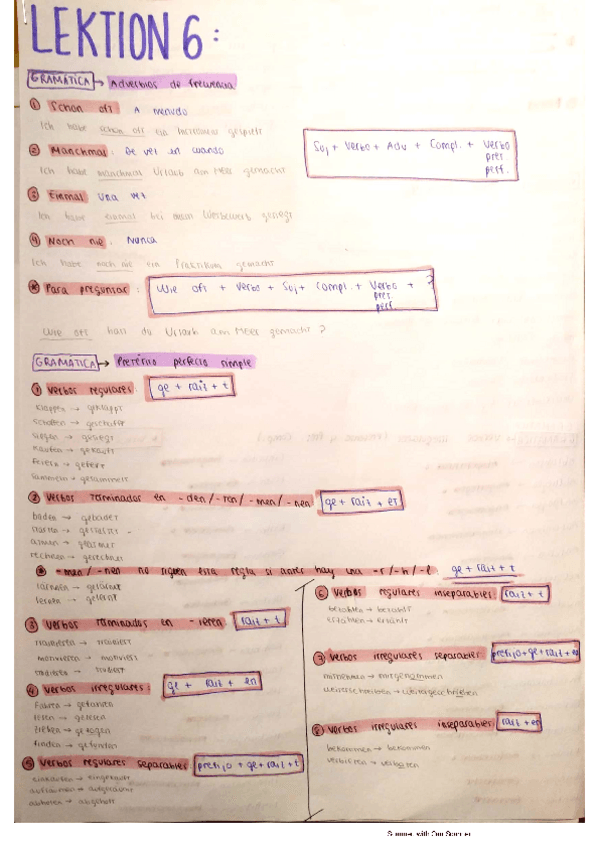 LEKTION 6:
GRAMÁTICA → Adverbios de frecuencia
① Schon oft: A menudo
Ich habe schon oft ein Instrument gespielt
② Manchmal: De vez en cuando
Ich habe manchmal Urlaub am Meer gemacht
Suj + Verbo + Adv + Compl. + Verbo
pret.
perf.
③ Einmal: Una vez
Ich habe einmal bei einem
④ Noch nie: Nunca
Ich habe noch nie ein Praktikum gemacht
Para preguntar:
Wie oft + Verbo + Suj + Compl. + Verbo + ?
pret.
perf.
Wie oft hast du Urlaub am Meer gemacht?
GRAMÁTICA → Pretérito perfecto simple
① Verbos regulares: ge + raíz + t
klappen → geklappt
schaffen → geschafft
siegen → gesiegt
kaufen → gekauft
feiern → gefeiert
sammeln → gesammelt
② Verbos terminados en -den/-ten/-men/-nen ge + raíz + et
baden → gebadet
rechnen → gerechnet
-men/-nen no siguen esta regla si antes hay una -r/-h/-l ge + raíz + t
lernen → gelernt
③ Verbos terminados en -ieren raíz + t
trainieren → trainiert
motivieren → motiviert
④ Verbos irregulares: ge + raíz + en
lesen → gelesen
ziehen → gezogen
finden → gefunden
⑤ Verbos regulares separables: prefijo + ge + raíz + t
einkaufen → eingekauft
aufräumen → aufgeräumt
⑥ Verbos regulares inseparables: raíz + t
bezahlen → bezahlt
erzählen → erzählt
⑦ Verbos irregulares separables: prefijo + ge + raíz + en
mitnehmen → mitgenommen
weiterschreiben → weitergeschrieben
⑧ Verbos irregulares inseparables: raíz + en
bekommen → bekommen
verbieten → verboten